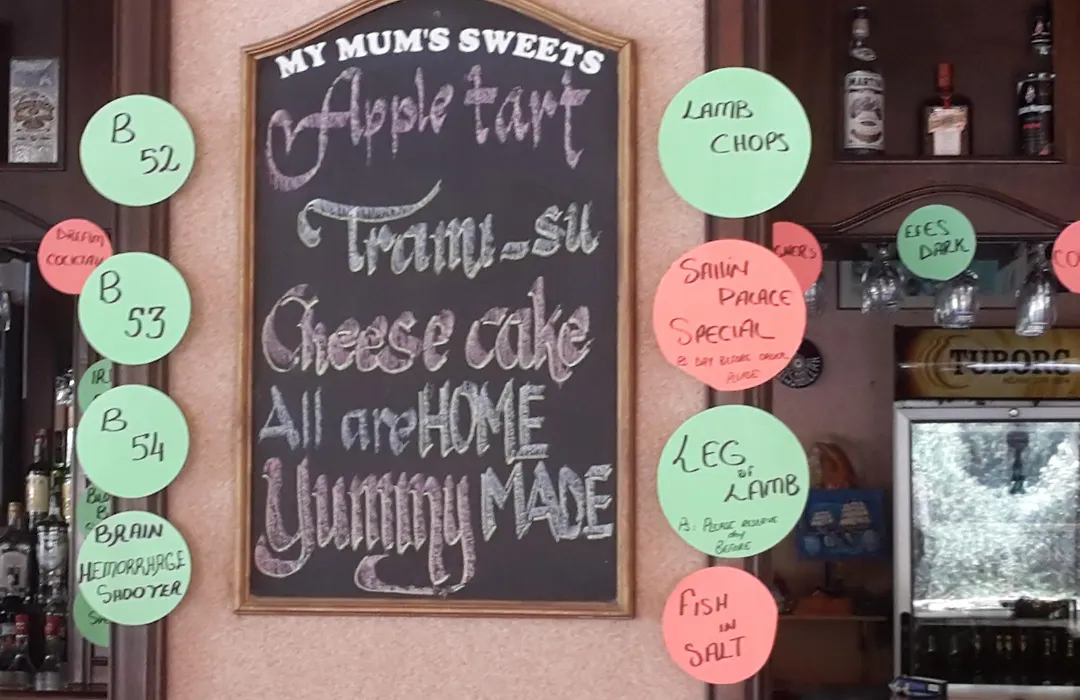 MY MUM'S SWEETS
Apple tart
Trami-su
Cheese cake
All are HOME
Yummy MADE
B
52
DREAM
COCKTAIL
B
53
B
54
BRAIN
HEMORRHAGE
SHOOTER
LAMB
CHOPS
SAILIN
PALACE
SPECIAL
DAY BEFORE ORDER
PLEASE
LEG
OF
LAMB
Ps: PLEASE RESERVE
day
BEFORE
FISH
IN
SALT
EFES
DARK
TUBORG
MARTINI